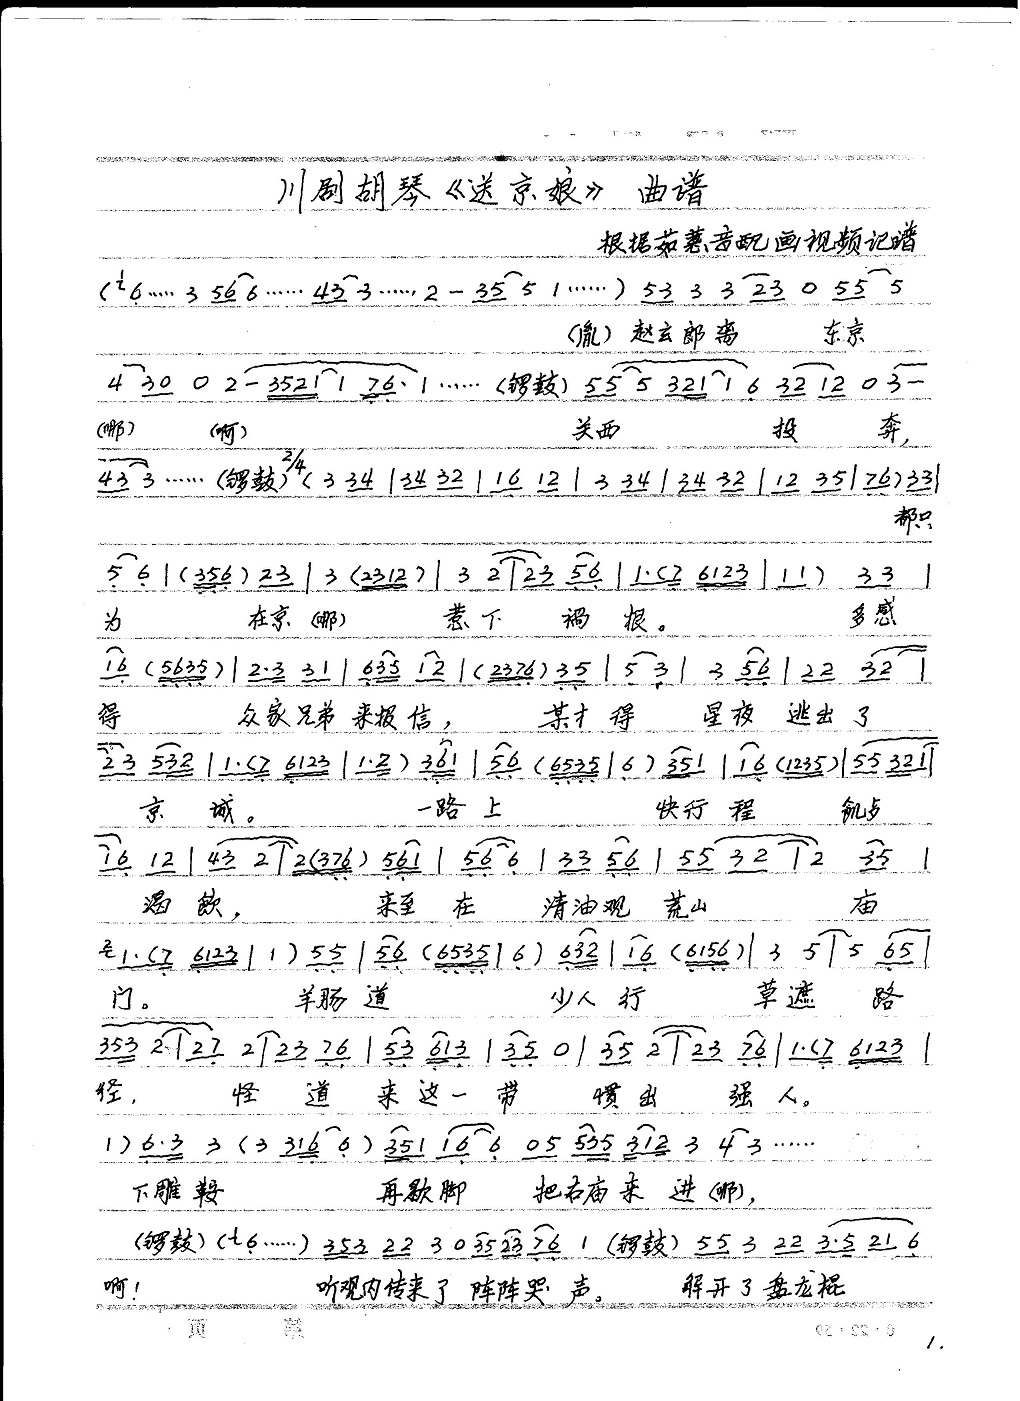 川剧胡琴《送京娘》 曲谱
根据茹蕙音配画视频记谱
(サ6…… 3 56 6 …… 43 3 …… 2 - 35 5 1 ……) 53 3 3 23 0 55 5
(胤) 赵玄郎离 东京
4 30 0 2 - 3521 1 76· 1 …… (锣鼓) 55 5 321 1 6 32 12 0 3 -
(哪) (啊) 关西 投 奔,
43 3 …… (锣鼓) 2/4 (3 34 | 34 32 | 16 12 | 3 34 | 34 32 | 12 35 | 76) 33 |
都只
5 6 | (356) 23 | 3 (2312) | 3 2 | 23 56 | 1·(7 6123 | 11) 33 |
为 在京(哪) 惹下 祸根。 多感
16 (5635) | 2·3 31 | 635 12 | (2376) 35 | 5 3 | 3 56 | 22 32 |
得 众家兄弟来报信, 某才得 星夜 逃出了
23 532 | 1·(7 6123 | 1·2) 361 | 56 (6535 | 6) 351 | 16 (1235) | 55 321 |
京 城。 一路上 快行程 饥步
16 12 | 43 2 | 2(376) 561 | 56 6 | 33 56 | 55 32 | 2 35 |
渴饮, 来至在 清油观 荒山 庙
1·(7 6123 | 1) 55 | 56 (6535 | 6) 632 | 16 (6156) | 3 5 | 5 65 |
门。 羊肠道 少人行 草遮 路
353 2· | 27 2 | 23 76 | 53 613 | 35 0 | 35 2 | 23 76 | 1·(7 6123 |
径, 怪道来这一带 惯出 强人。
1) 6·3 3 (3 316 6) 351 16 6 05 535 312 3 4 3 ……
下雕鞍 再歇脚 把右庙来 进(哪),
(锣鼓) (サ6……) 353 22 3 0 35 23 76 1 (锣鼓) 55 3 22 3·5 21 6
啊! 听观内传来了 阵阵哭声。 解开了盘龙棍
第 页
1.